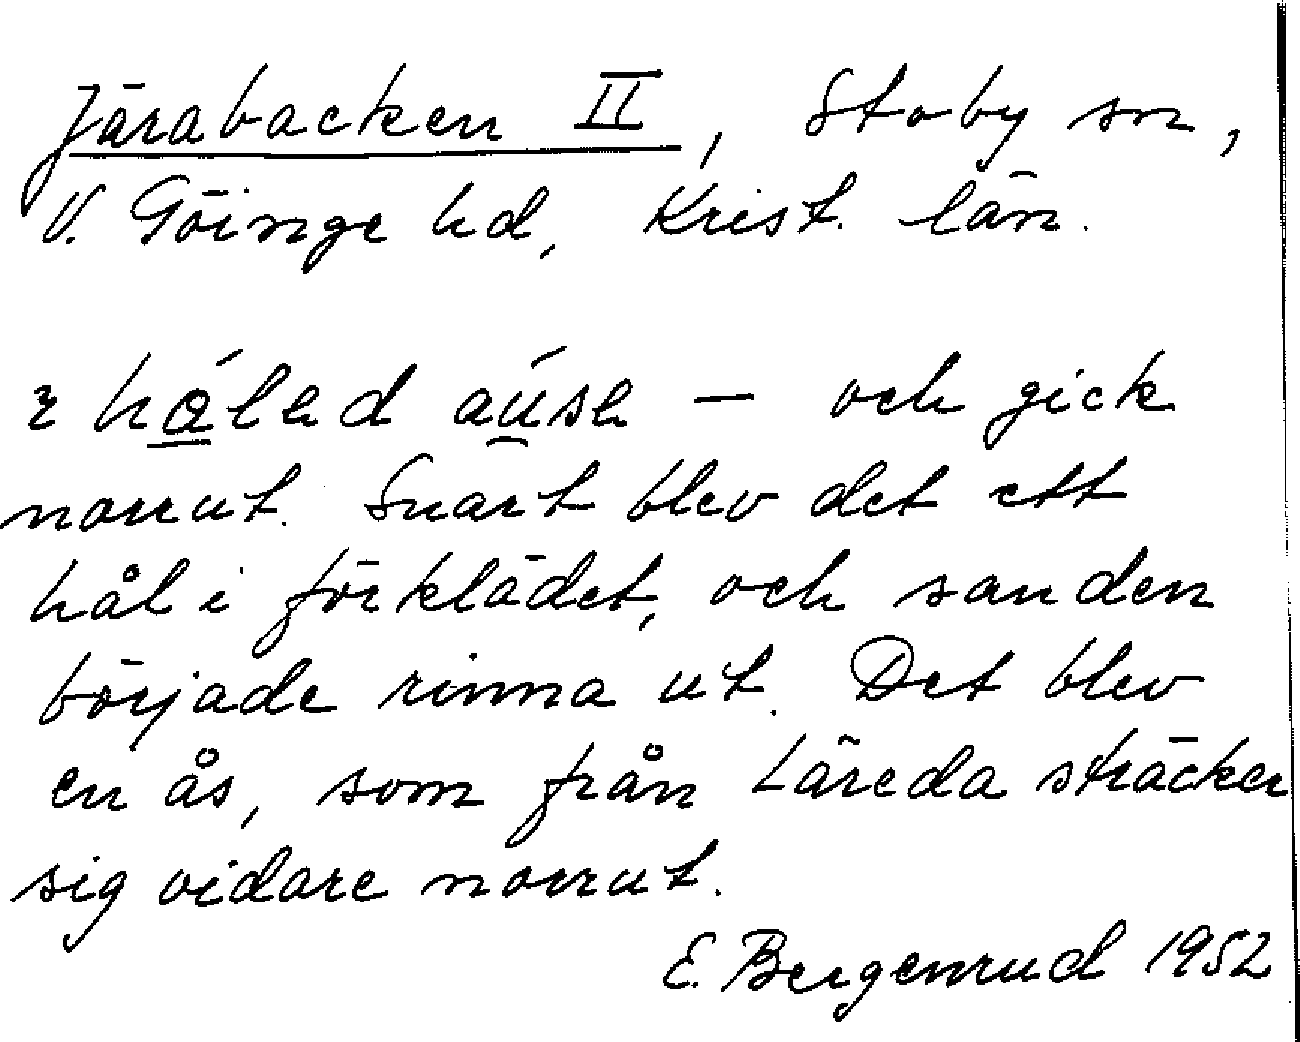 Järabacken II, Stoby sn,
V. Göinge hd, Krist. län.
och gick
norrut. Snart blev det ett
hål i förklädet, och sanden
började rinna ut. Det blev
en ås, som från Läreda sträcker
sig vidare norrut.
E. Bergenrud 1952